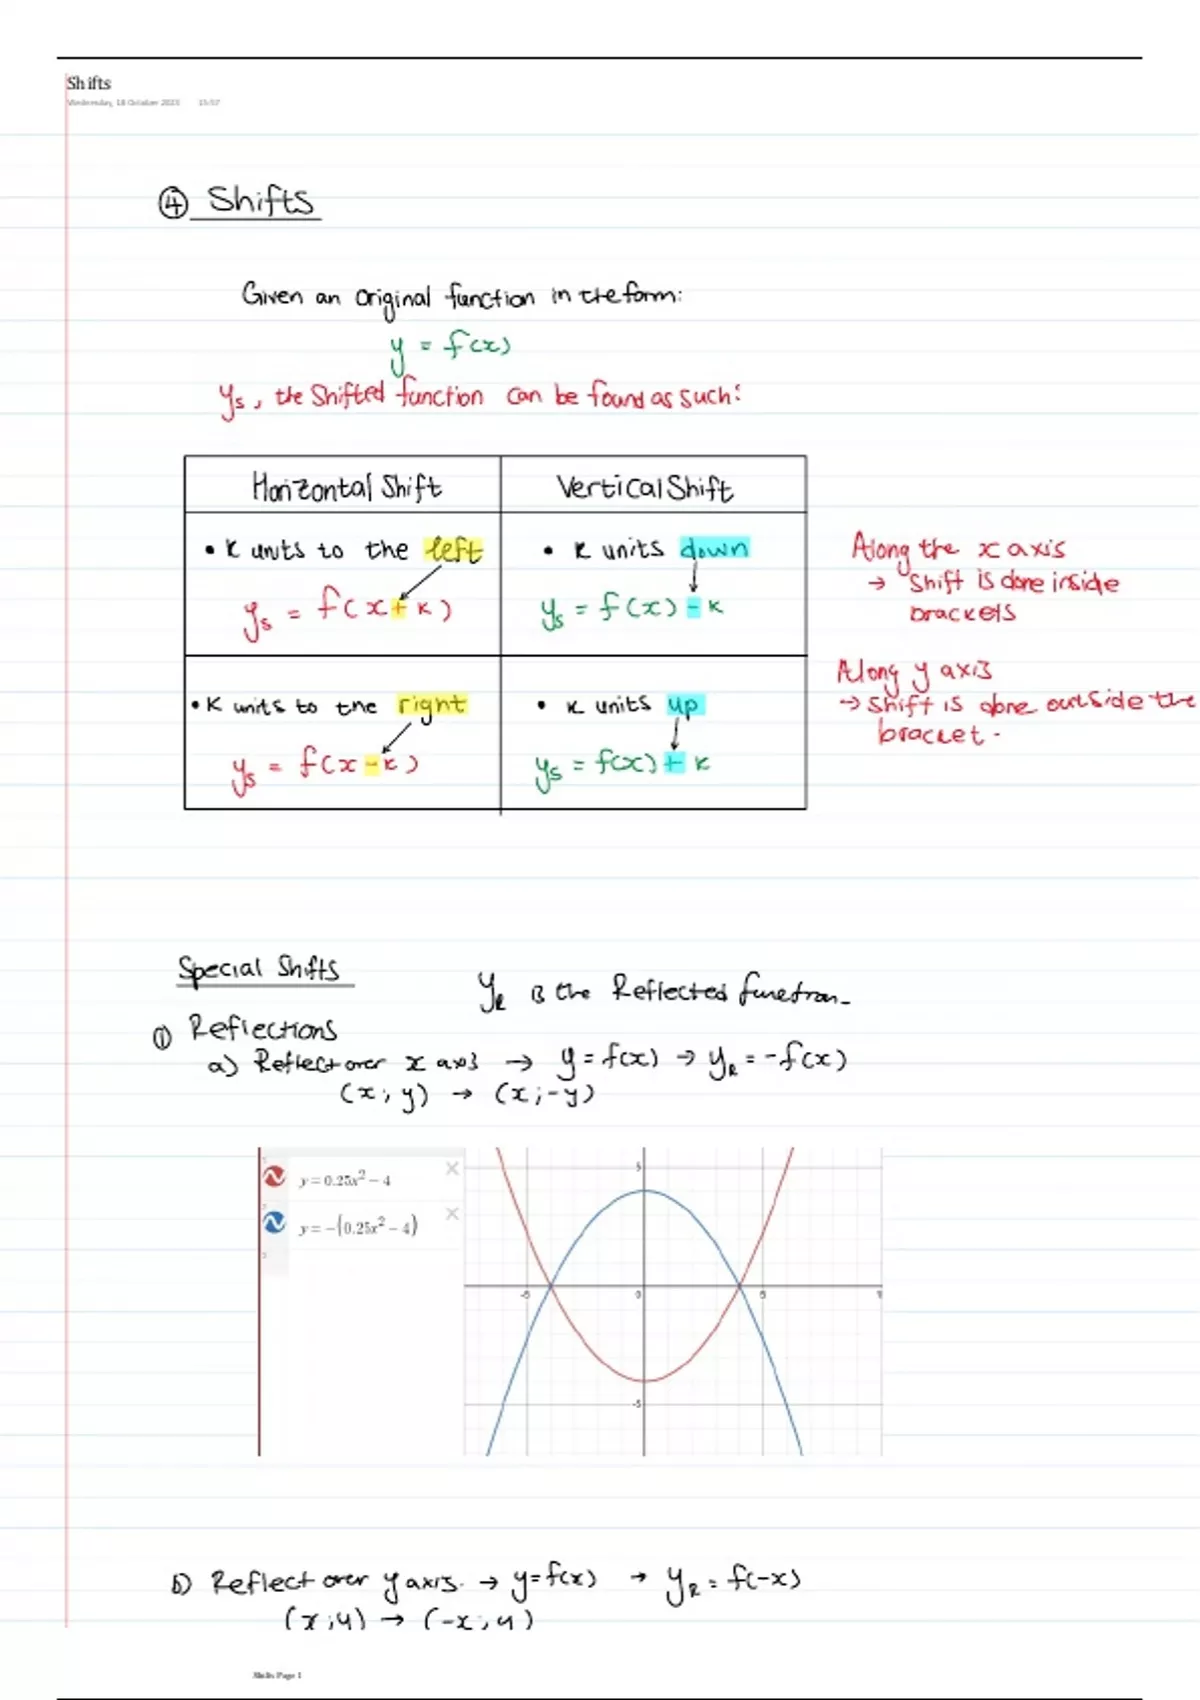 Shifts
Wednesday, 18 October 2023 15:57
④ Shifts
Given an original function in the form:
y = f(x)
ys, the shifted function can be found as such:
Horizontal Shift
Vertical Shift
• K units to the left
• K units down
ys = f(x+k)
ys = f(x) - k
• K units to the right
• K units up
ys = f(x-k)
ys = f(x) + k
Along the x axis
→ Shift is done inside
brackets
Along y axis
→ Shift is done outside the
bracket.
Special Shifts
yR is the Reflected function.
① Reflections
a) Reflect over x axis → y = f(x) → yR = -f(x)
(x;y) → (x;-y)
y = 0.25x² - 4
y = -(0.25x² - 4)
5
-5
0
5
-5
b) Reflect over y axis. → y=f(x) → yR = f(-x)
(x;y) → (-x;y)
Shifts Page 1